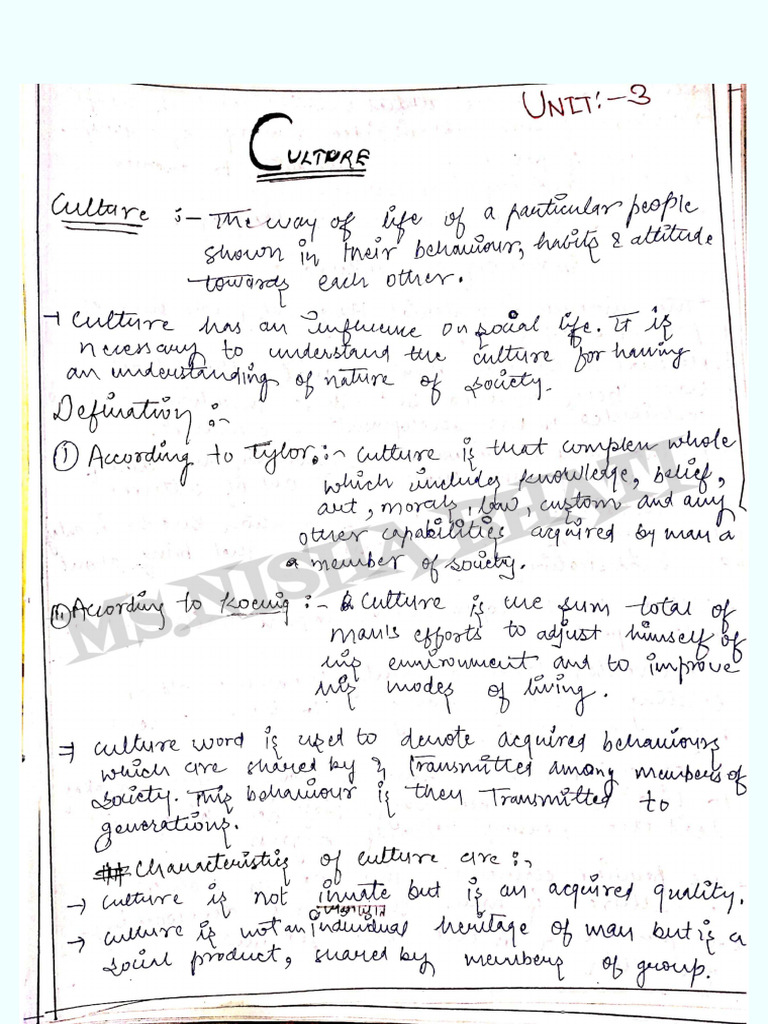 UNIT:-3
CULTURE
Culture :- The way of life of a particular people
shown in their behaviour, habits & attitude
towards each other.
→ Culture has an influence on social life. It is
necessary to understand the culture for having
an understanding of nature of society.
Defination :-
① According to Tylor :- culture is that complex whole
which includes knowledge, belief,
art, morals, law, custom and any
other capabilities acquired by man a
a member of society.
② According to Koenig :- Culture is the sum total of
man's efforts to adjust himself of
his environment and to improve
his modes of living.
⇒ culture word is used to denote acquired behaviours
which are shared by & transmitted among members of
society. This behaviour is then Transmitted to
generations.
## Characteristics of culture are :-
→ culture is not innate but is an acquired quality.
→ culture is not an individual heritage of man but is a
social product, shared by members of group.
MS.NISHA BHATI